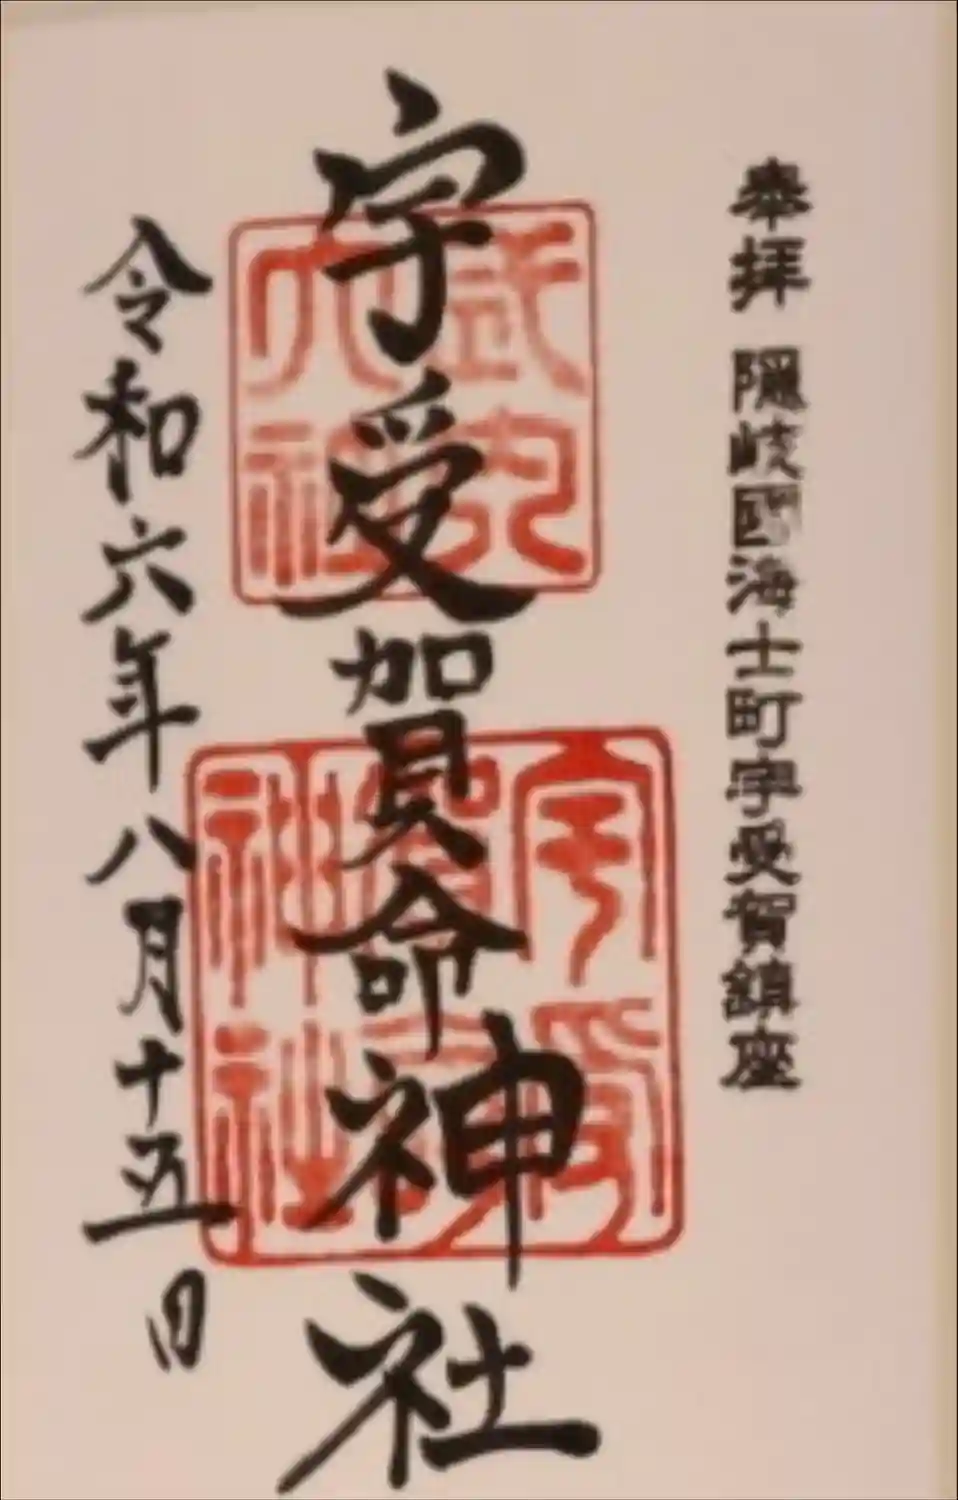 奉拝 隠岐國海士町宇受賀鎮座
宇受賀命神社
令和六年八月十五日
式内
大社
宇受
賀命
神社